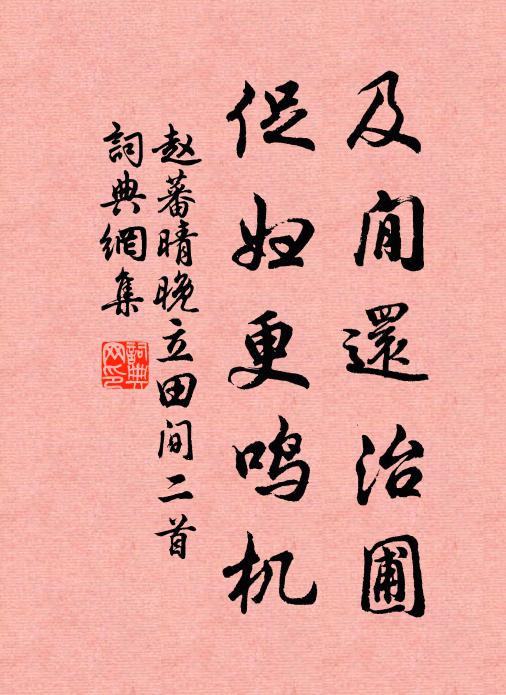 及闲還治圃
促妇更鸣机
赵蕃晴晚立田间二首
詞典網集
詞典网印